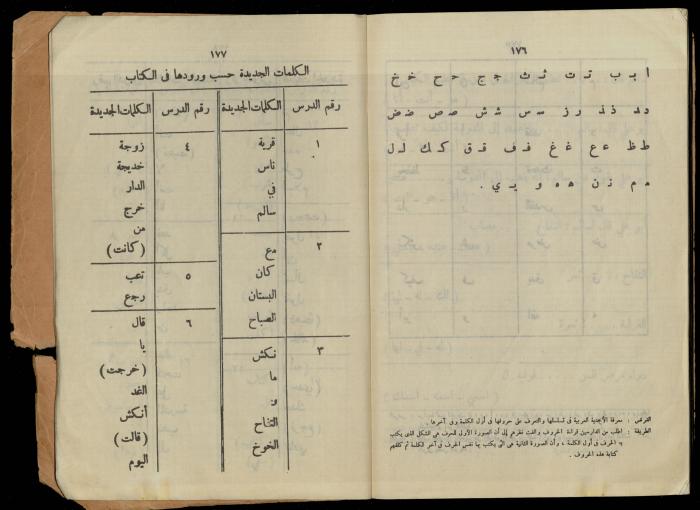 ١٧٦
ا ب ب ت ت ث ث ج ج ح ح خ خ
د د ذ ذ ر ز س س ش ش ص ص ض ض
ط ظ ع ع غ غ ف ف ق ق ك ك ل ل
م م ن ن ه ه و ي ي .
الغرض : معرفة الأبجدية العربية فى تسلسلها والتعرف على حروفها فى أول الكلمة وفى آخرها .
الطريقة : اطلب من الدارسين قراءة الحروف والفت نظرهم إلى أن الصورة الأولى للحرف هى الشكل الذى يكتب
به الحرف فى أول الكلمة ، وأن الصورة الثانية هى التى يكتب بها نفس الحرف فى آخر الكلمة ثم كلفهم
كتابة هذه الحروف .
١٧٧
الكلمات الجديدة حسب ورودها فى الكتاب
رقم الدرس الكلمات الجديدة رقم الدرس الكلمات الجديدة
١ قرية
ناس
في
سالم
٢ مع
كان
البستان
الصباح
٣ نكش
ما
و
التفاح
الخوخ
٤ زوجة
خديجة
الدار
خرج
من
(كانت)
٥ تعب
رجع
٦ قال
يا
(خرجت)
الغد
أنكش
(قالت)
اليوم